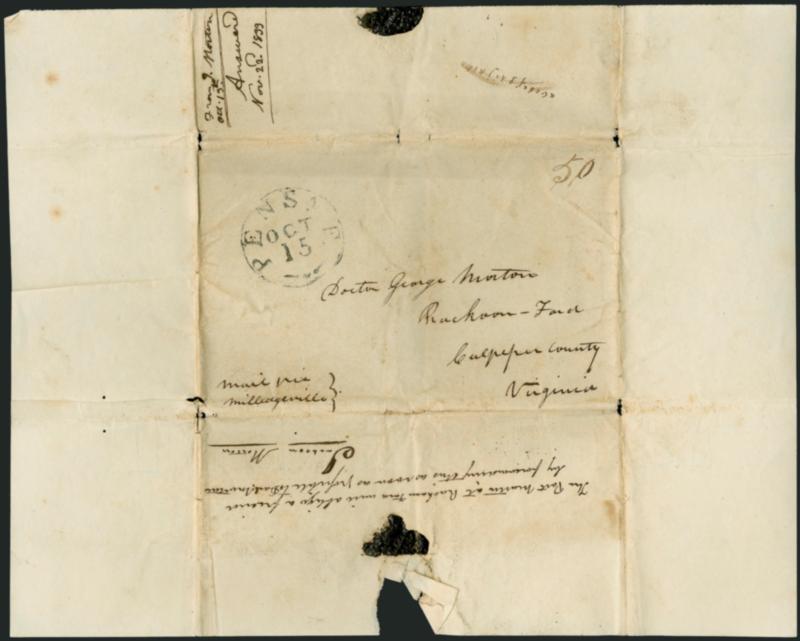 From J. Morton
Oct. 15th
Answered
Nov. 22. 1833
50
PENSA E
OCT
15
Doctor George Morton
Rackoon-Ford
Culpeper County
Virginia
mail via
Milledgeville
The Post Master at Rackoon Ford will oblige a friend
by forwarding this as soon as possible to
Jackson
Morton